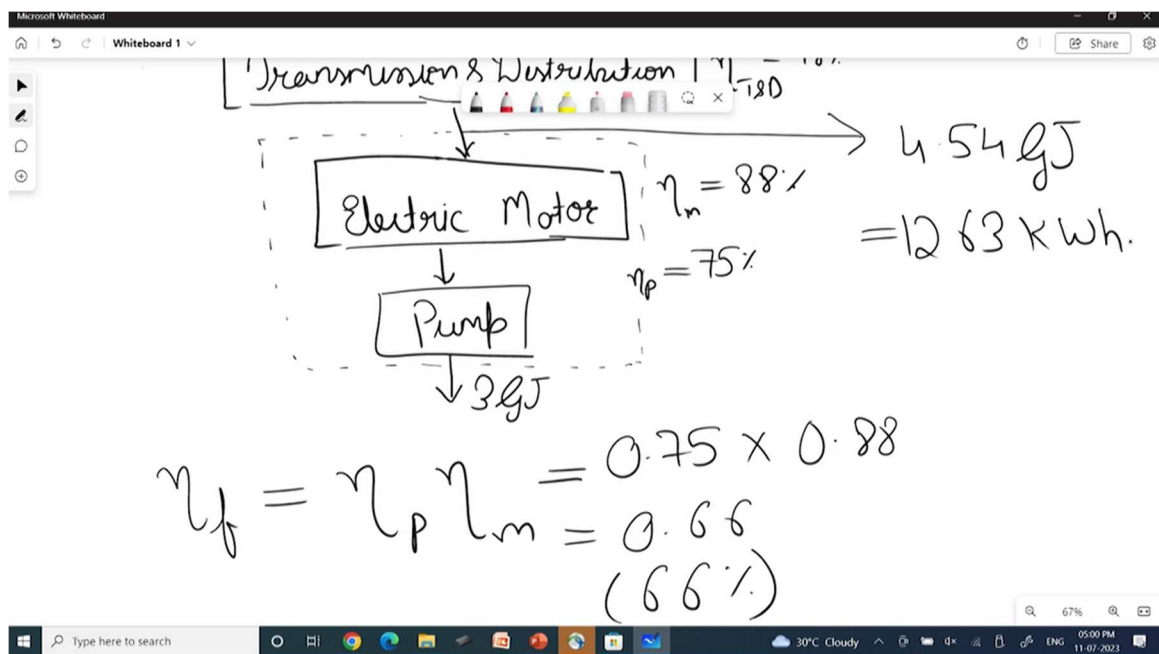 Microsoft Whiteboard
Whiteboard 1
Share
Transmission & Distribution
T&D
4.54 GJ
= 1263 kWh.
Electric Motor
ηm = 88%
ηp = 75%
Pump
3 GJ
ηf = ηp ηm = 0.75 × 0.88
= 0.66
(66%)
67%
Type here to search
30°C Cloudy
ENG
05:00 PM
11-07-2023